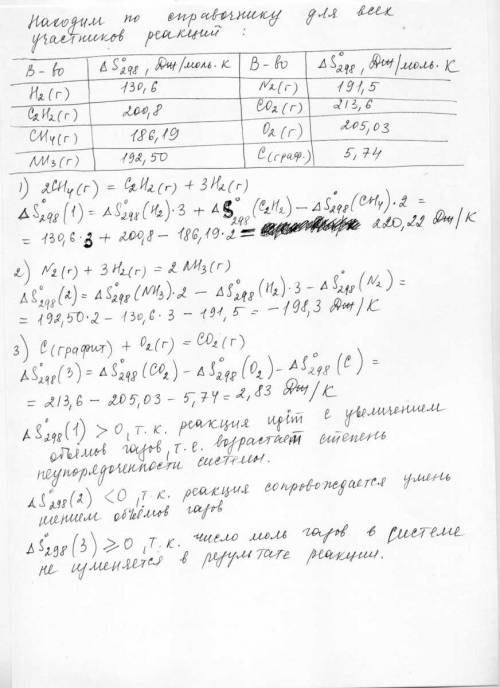 Находим по справочнику для всех
участников реакций :
В-во ΔS°298, Дж/моль.К В-во ΔS°298, Дж/моль.К
H2(г) 130,6 N2(г) 191,5
C2H2(г) 200,8 CO2(г) 213,6
CH4(г) 186,19 O2(г) 205,03
NH3(г) 192,50 C(граф.) 5,74
1) 2CH4(г) = C2H2(г) + 3H2(г)
ΔS°298(1) = ΔS°298(H2)·3 + ΔS°298(C2H2) – ΔS°298(CH4)·2 =
= 130,6·3 + 200,8 – 186,19·2 = 220,22 Дж/К
2) N2(г) + 3H2(г) = 2NH3(г)
ΔS°298(2) = ΔS°298(NH3)·2 – ΔS°298(H2)·3 – ΔS°298(N2) =
= 192,50·2 – 130,6·3 – 191,5 = –198,3 Дж/К
3) C(графит) + O2(г) = CO2(г)
ΔS°298(3) = ΔS°298(CO2) – ΔS°298(O2) – ΔS°298(C) =
= 213,6 – 205,03 – 5,74 = 2,83 Дж/К
ΔS°298(1) > 0, т.к. реакция идёт с увеличением
объёмов газов, т.е. возрастает степень
неупорядоченности системы.
ΔS°298(2) < 0, т.к. реакция сопровождается умень
шением объёмов газов
ΔS°298(3) ⩾ 0, т.к. число моль газов в системе
не изменяется в результате реакции.